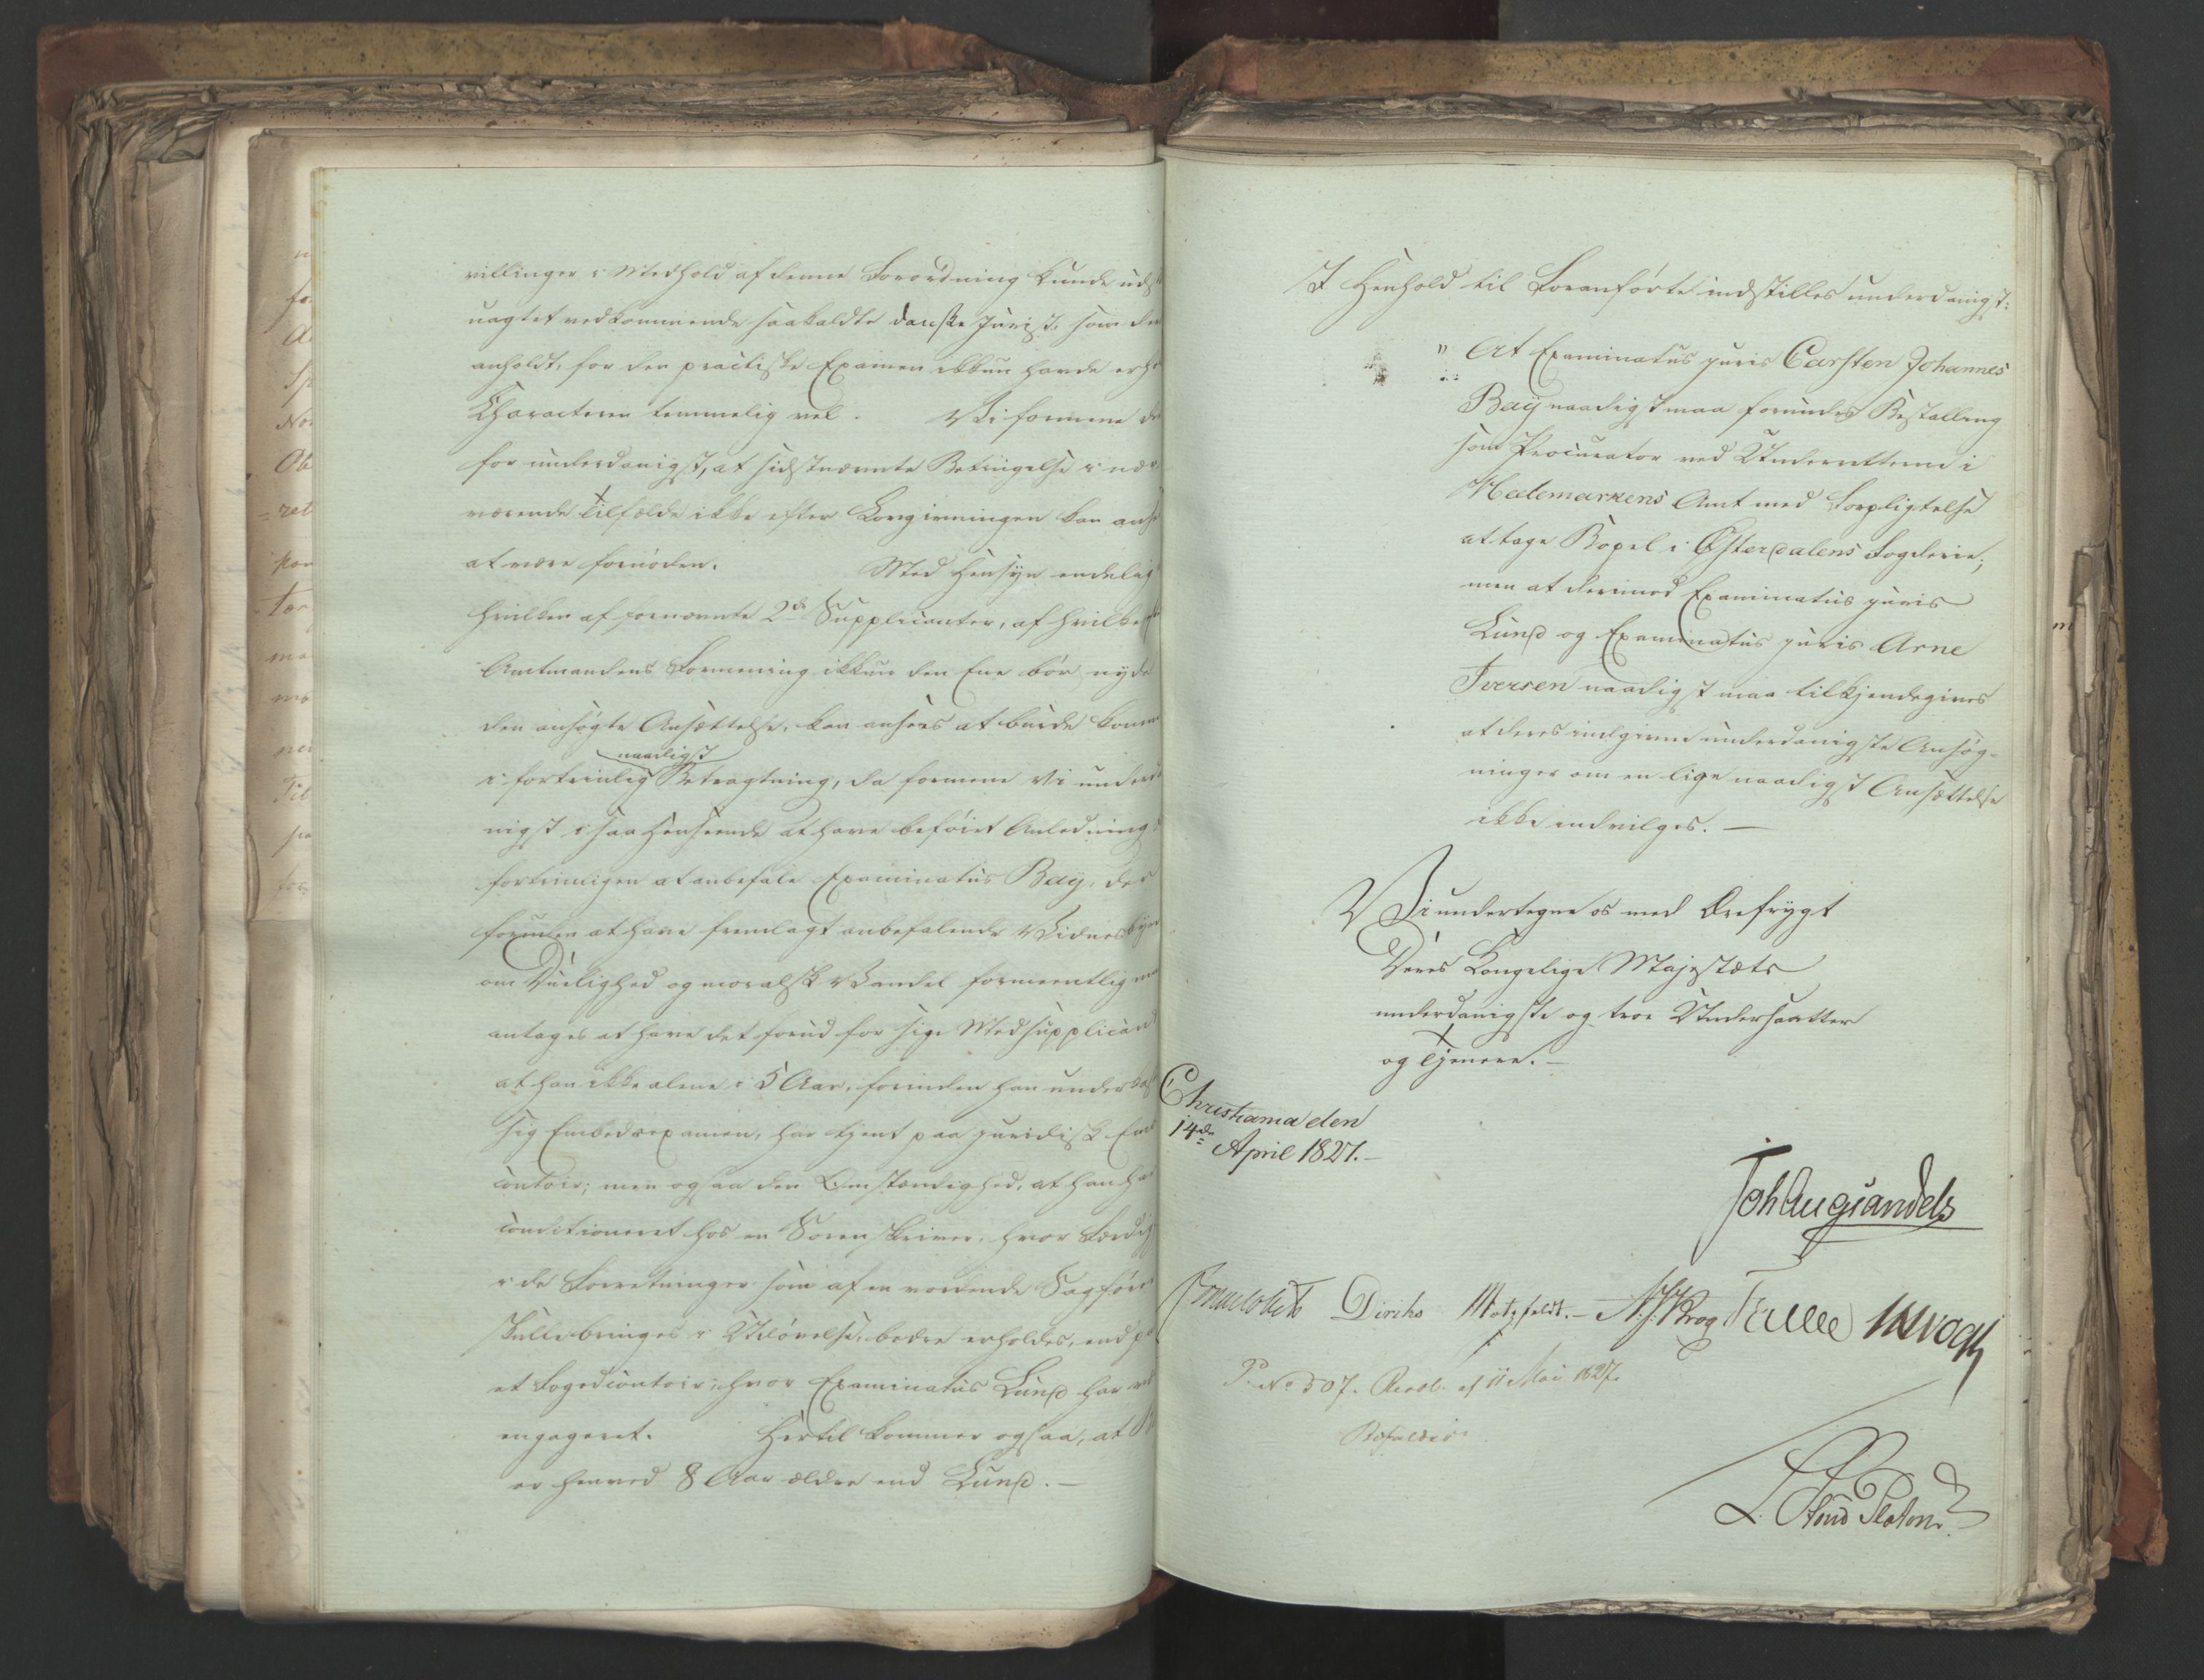 villinger i Medhold af denne Forordning kunde uds
uagtet vedkommende saakaldte danske Jurist, som den
anholdt, for den practiske Examen ikkun havde erho
Characteren temmelig vel. Vi formene de
for underdanigst, at sidstnævnte Betingelse i nær
værende Tilfælde ikke efter Lovgivningen kan anse
at være fornöden. Med Hensyn endelig
hvilken af fornævnte 2de Supplicanter, af hvilke
Amtmandens Formening ikkun den Ene bör nyde
den ansögte Ansættelse, kan ansees at burde komme
naadigst
i fortrinlig Betragtning, da formene Vi underda
nigst i saa Henseende at have beföiet Anledning
fortrinligen at anbefale Examinatus Bay, der
foruden at have fremlagt anbefalende Vidnesbyr
om Duelighed og moralsk Vandel formeentlig maa
antages at have det forud for sige Medsupplicant
at han ikke alene i 5 Aar, forinden han underkast
sig Embedsexamen, har tjent paa juridisk Em
contoir; men ogsaa den Omstændighed, at han har
conditioneret hos en Sorenskriver, hvor Færdig
i de Forretninger som af en vordende Sagförer
skulle bringes i Udövelse, bedre erholdes, end p
et Fogedcontoir, hvor Examinatus Lund har v
engageret. Hertil kommer ogsaa, at B
er henved 8 Aar ældre end Lund. —
I Henhold til Foranförte indstilles underdanigst:
" At Examinatus juris Carsten Johannes
Bay naadigst maa forundes Bestalling
som Procurator ved Underretterne i
Hedemarkens Amt med Forpligtelse
at tage Bopæl i Østerdalens Fogderie;
men at derimod Examinatus juris
Lund og Examinatus juris Arne
Iversen naadigst maa tilkjendegives
at deres indgivne underdanigste Ansög-
ninger om en lige naadigst Ansættelse
ikke indvilges. —
Vi undertegne os med Ærefrygt
Deres Kongelige Majestæts
underdanigste og troe Undersaatter
og Tjenere. —
Christiania den
14de April 1827. —
Joh Aug Sandels
Diriks Motzfeldt. — N. J. Krog
P. No 507. Resol. af 11 Mai 1827.
Bifaldes.